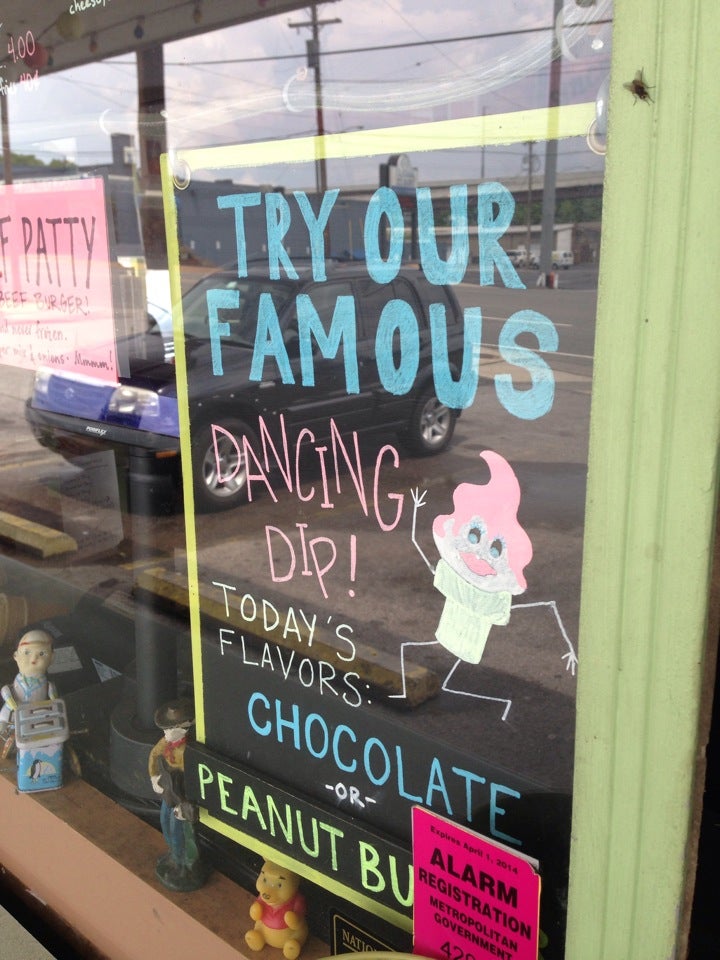 4.00
F PATTY
BEEF BURGER!
never frozen.
& onions. Mmmm!
TRY OUR
FAMOUS
DANCING
DIP!
TODAY'S
FLAVORS:
CHOCOLATE
-OR-
PEANUT BU
Expires April 1, 2014
ALARM
REGISTRATION
METROPOLITAN
GOVERNMENT
420
NATIO